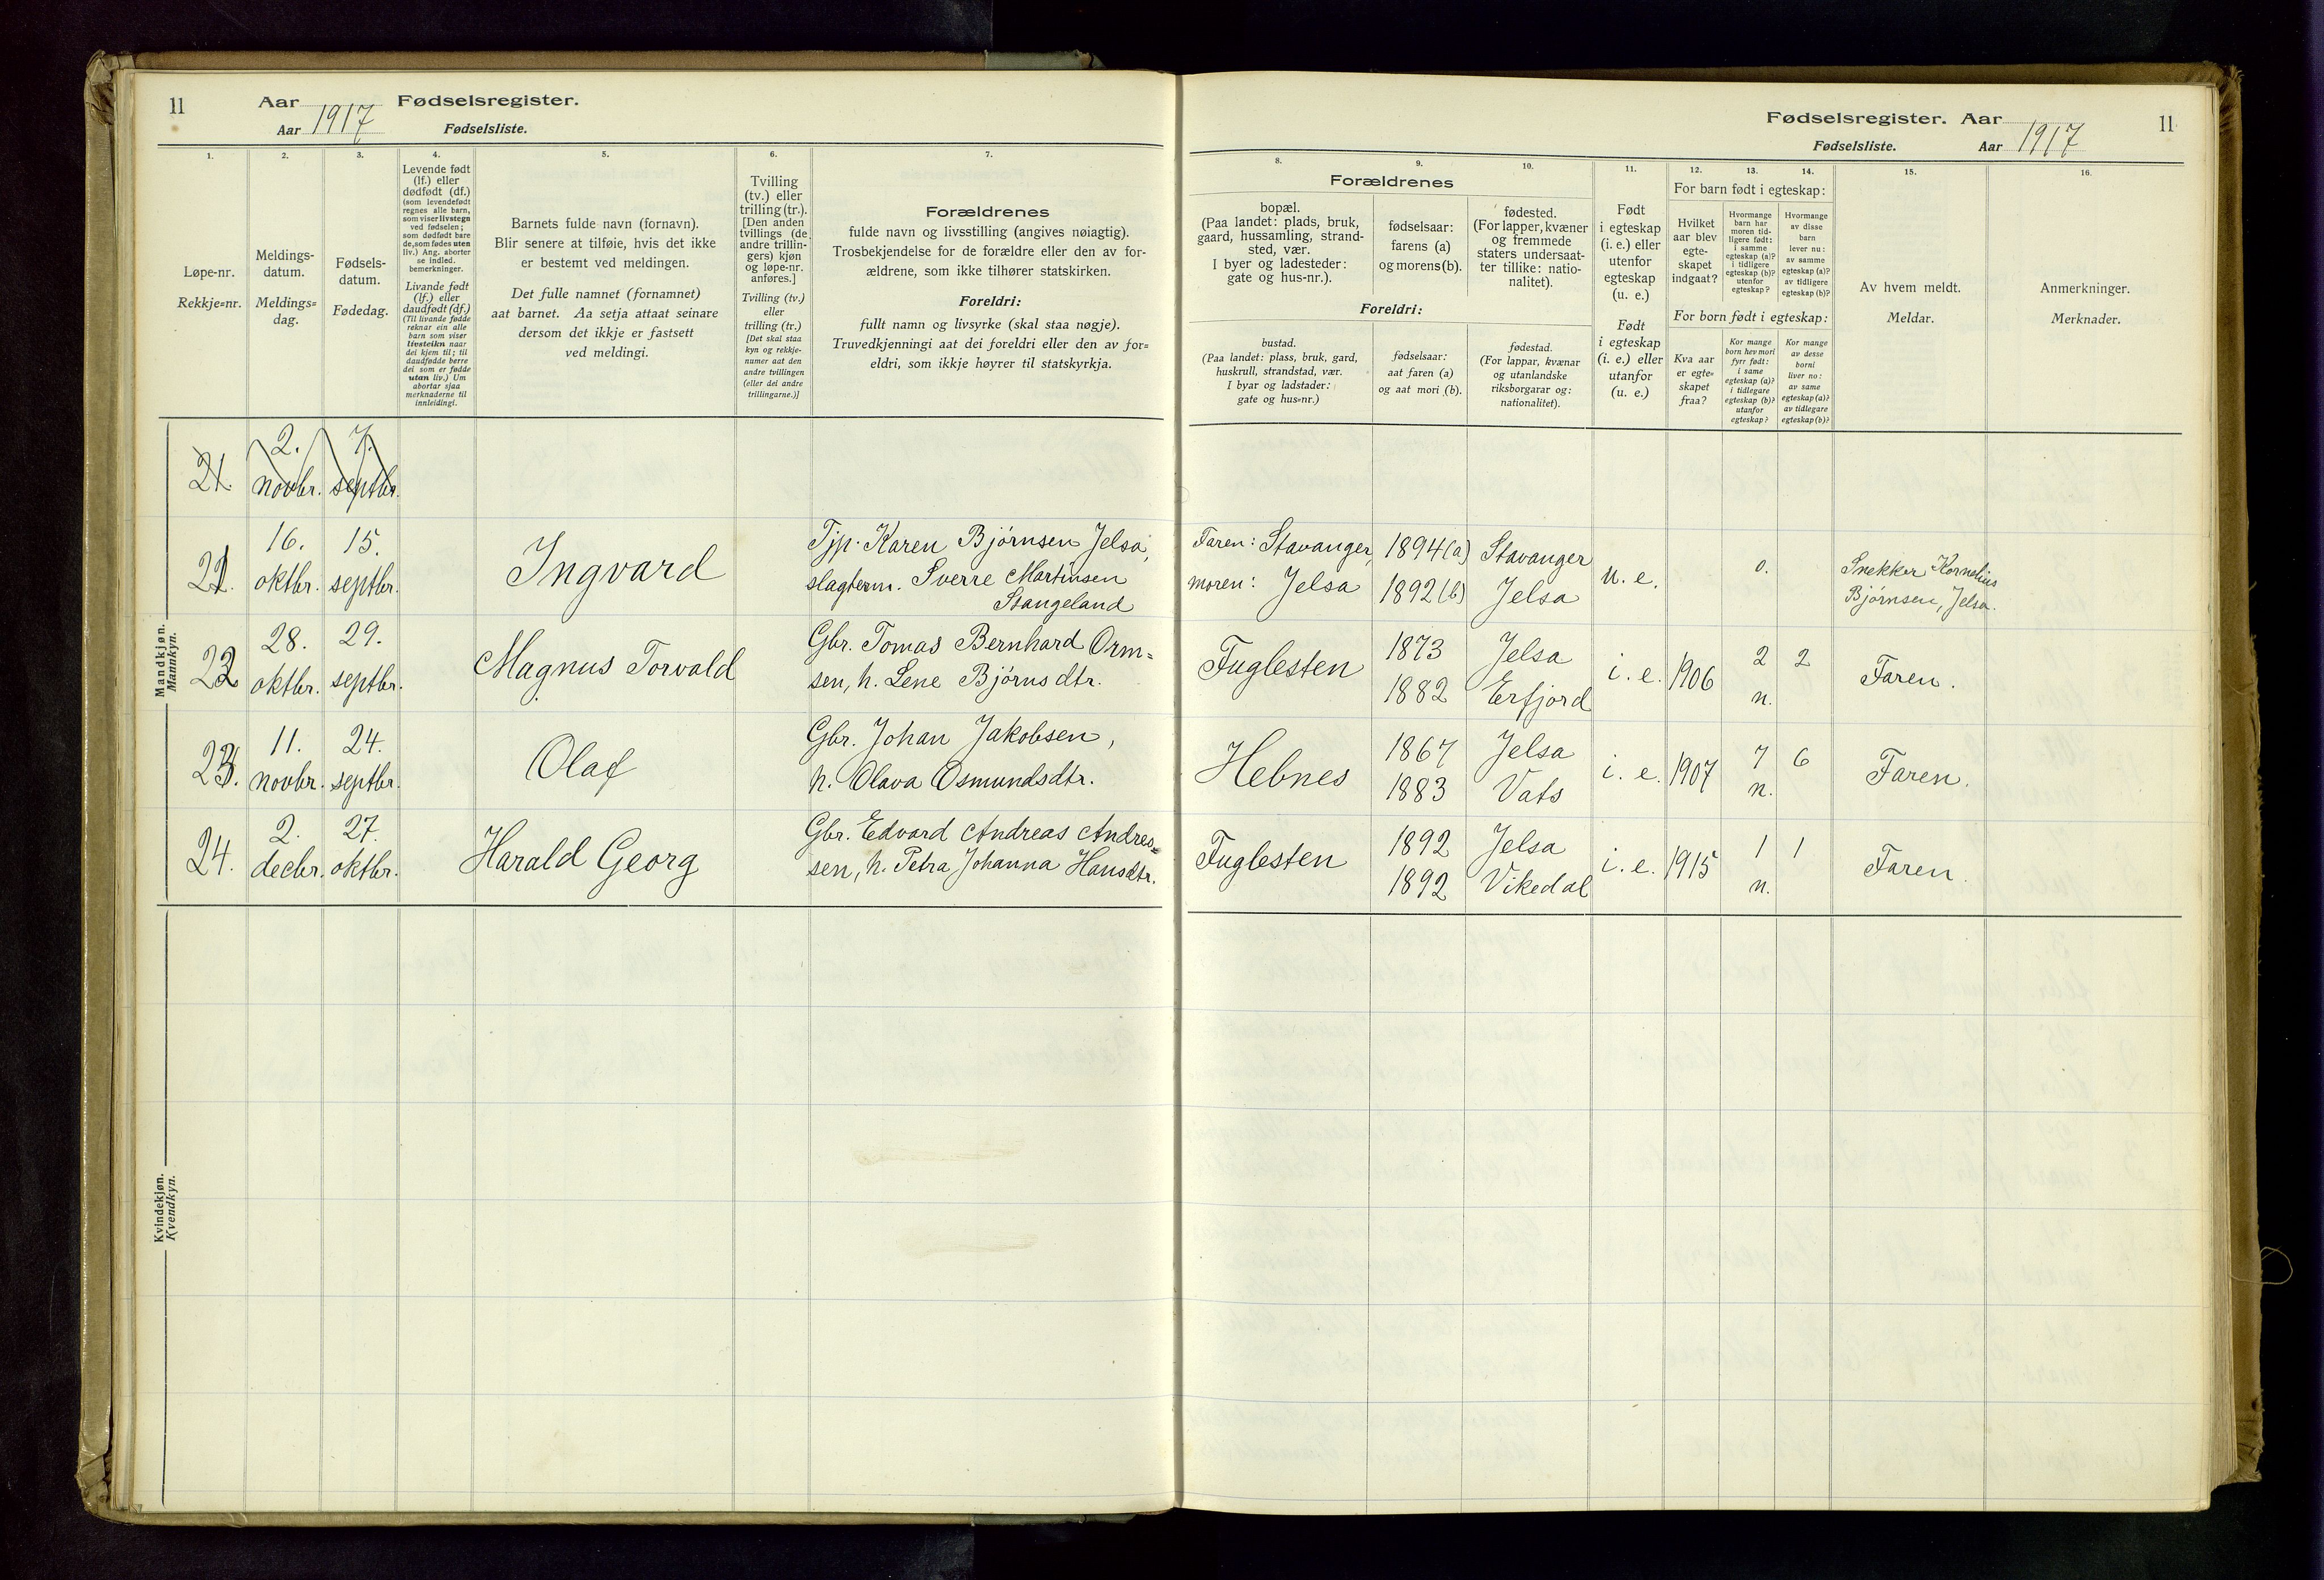 11
Aar 1917
Fødselsregister.
Aar
Fødselsliste.
1.
2.
3.
4.
5.
6.
7.
Løpe-nr.
Rekkje=nr.
Meldings-
datum.
Meldings=
dag.
Fødsels-
datum.
Fødedag.
Levende født
(lf.) eller
dødfødt (df.)
(som levendefødt
regnes alle barn,
som viser livstegn
ved fødselen;
som dødfødt bare
de, som fødes uten
liv.) Ang. aborter
se indled.
bemerkninger.
Livande født
(lf.) eller
daudfødt (df.)
(Til livande fødde
reknar ein alle
barn som viser
livsteikn naar
dei kjem til; til
daudfødde berre
dei som er fødde
utan liv.) Um
abortar sjaa
merknaderne til
innleidingi.
Barnets fulde navn (fornavn).
Blir senere at tilføie, hvis det ikke
er bestemt ved meldingen.
Det fulle namnet (fornamnet)
aat barnet. Aa setja attaat seinare
dersom det ikkje er fastsett
ved meldingi.
Tvilling
(tv.) eller
trilling (tr.).
[Den anden
tvillings (de
andre trillin-
gers) kjøn
og løpe-nr.
anføres.]
Tvilling (tv.)
eller
trilling (tr.)
[Det skal staa
kyn og rekkje-
numer aat den
andre tvillingen
(eller dei andre
trillingarne.)]
Forældrenes
fulde navn og livsstilling (angives nøiagtig).
Trosbekjendelse for de forældre eller den av for-
ældrene, som ikke tilhører statskirken.
Foreldri:
fullt namn og livsyrke (skal staa nøgje).
Truvedkjenningi aat dei foreldri eller den av for=
eldri, som ikkje høyrer til statskyrkja.
Mandkjøn.
Mannkyn.
21. 2. novbr. 7. septbr.
21. 16. oktbr. 15. septbr. Ingvard
Tjp. Karen Bjørnsen Jelsa,
slagterm. Sverre Martinsen
Stangeland
22 28. oktbr. 29. septbr. Magnus Torvald
Gbr. Tomas Bernhard Orm=
sen, h. Lene Bjørnsdtr.
23. 11. novbr. 24. septbr. Olaf
Gbr. Johan Jakobsen,
h. Olava Osmundsdtr.
24. 2. decbr. 27. oktbr. Harald Georg
Gbr. Edvard Andreas Andres=
sen, h. Petra Johanna Hansdtr.
Kvindekjøn.
Kvendkyn.
Fødselsregister. Aar
1917
11
Fødselsliste.
Aar
8.
9.
10.
11.
12.
13.
14.
15.
16.
Forældrenes
bopæl.
(Paa landet: plads, bruk,
gaard, hussamling, strand-
sted, vær.
I byer og ladesteder:
gate og hus-nr.).
fødselsaar:
farens (a)
og morens (b).
fødested.
(For lapper, kvæner
og fremmede
staters undersaat-
ter tillike: natio-
nalitet).
Foreldri:
bustad.
(Paa landet: plass, bruk, gard,
huskrull, strandstad, vær.
I byar og ladstader:
gate og hus=nr.)
fødselsaar:
aat faren (a)
og aat mori (b).
fødestad.
(For lappar, kvænar
og utanlandske
riksborgarar og:
nationalitet).
Født
i egteskap
(i. e.) eller
utenfor
egteskap
(u. e.)
Født
i egteskap
(i. e.) eller
utanfor
(u. e.)
For barn født i egteskap:
Hvilket
aar blev
egte-
skapet
indgaat?
Hvormange
barn har
moren tid-
ligere født:
i samme
egteskap (a)?
i tidligere
egteskap (b)?
utenfor
egteskap?
Hvormange
av disse
barn
lever nu:
av samme
egteskap (a)?
av tidligere
egteskap (b)?
For born født i egteskap:
Kva aar
er egte=
skapet
fraa?
Kor mange
born hev mori
fyrr født:
i same
egteskap (a)?
i tidlegare
egteskap (b)?
utanfor
egteskap?
Kor mange
av desse
borni
liver no:
av same
egteskap (a)?
av tidlegare
egteskap (b)?
Av hvem meldt.
Meldar.
Anmerkninger.
Merknader.
Faren: Stavanger, 1894 (a) Stavanger
moren: Jelsa 1892 (b) Jelsa
u. e. 0.
Snekker Kornelius
Bjørnsen, Jelsa.
Fuglesten 1873 Jelsa
1882 Erfjord
i. e. 1906 2 2
n.
Faren.
Hebnes 1867 Jelsa
1883 Vats
i. e. 1907 7 6
n.
Faren.
Fuglesten 1892 Jelsa
1892 Vikedal
i. e. 1915 1 1
n.
Faren.